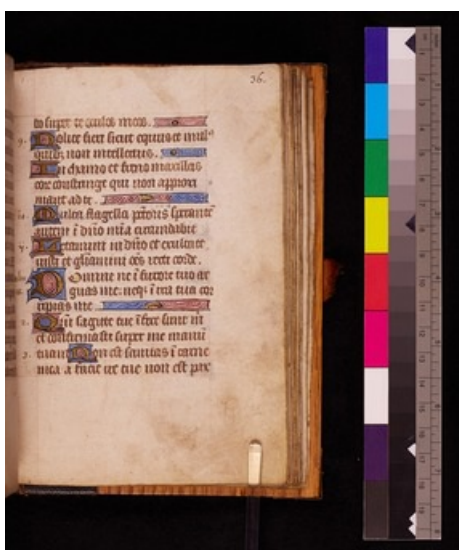 36.
to super te oculos meos.
Nolite fieri sicut equus et mul⁹
quib; non intellectus.
In chamo et freno maxillas
eor constringe qui non approxi
mant ad te.
Multa flagella pctoris sperante
autem i dnō mīa circundabit
Letamini in dnō et exultate
iusti et gliamini oēs recti corde.
Domine ne i furore tuo ar
guas me. neq; i ira tua cor
ripias me
Qm̄ sagitte tue ifixe sunt m
et confirmasti super me manū
tuam Non est sanitas i carne
mea a facie ire tue non est pax